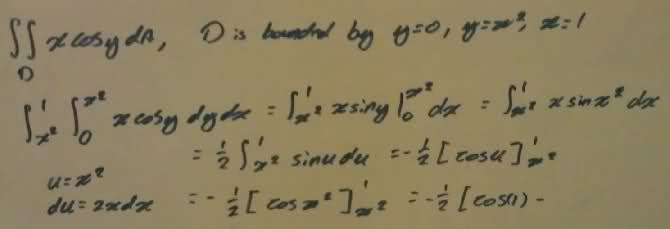 ∬_D x cos y dA, D is bounded by y=0, y=x², x=1
∫_{x²}^{1} ∫_0^{x²} x cosy dy dx = ∫_{x²}^{1} x siny |_0^{x²} dx = ∫_{x²}^{1} x sin x² dx
= ½ ∫_{x²}^{1} sin u du = -½ [cos u]_{x²}^{1}
u = x²
du = 2x dx = -½ [cos x²]_{x²}^{1} = -½ [cos(1) -